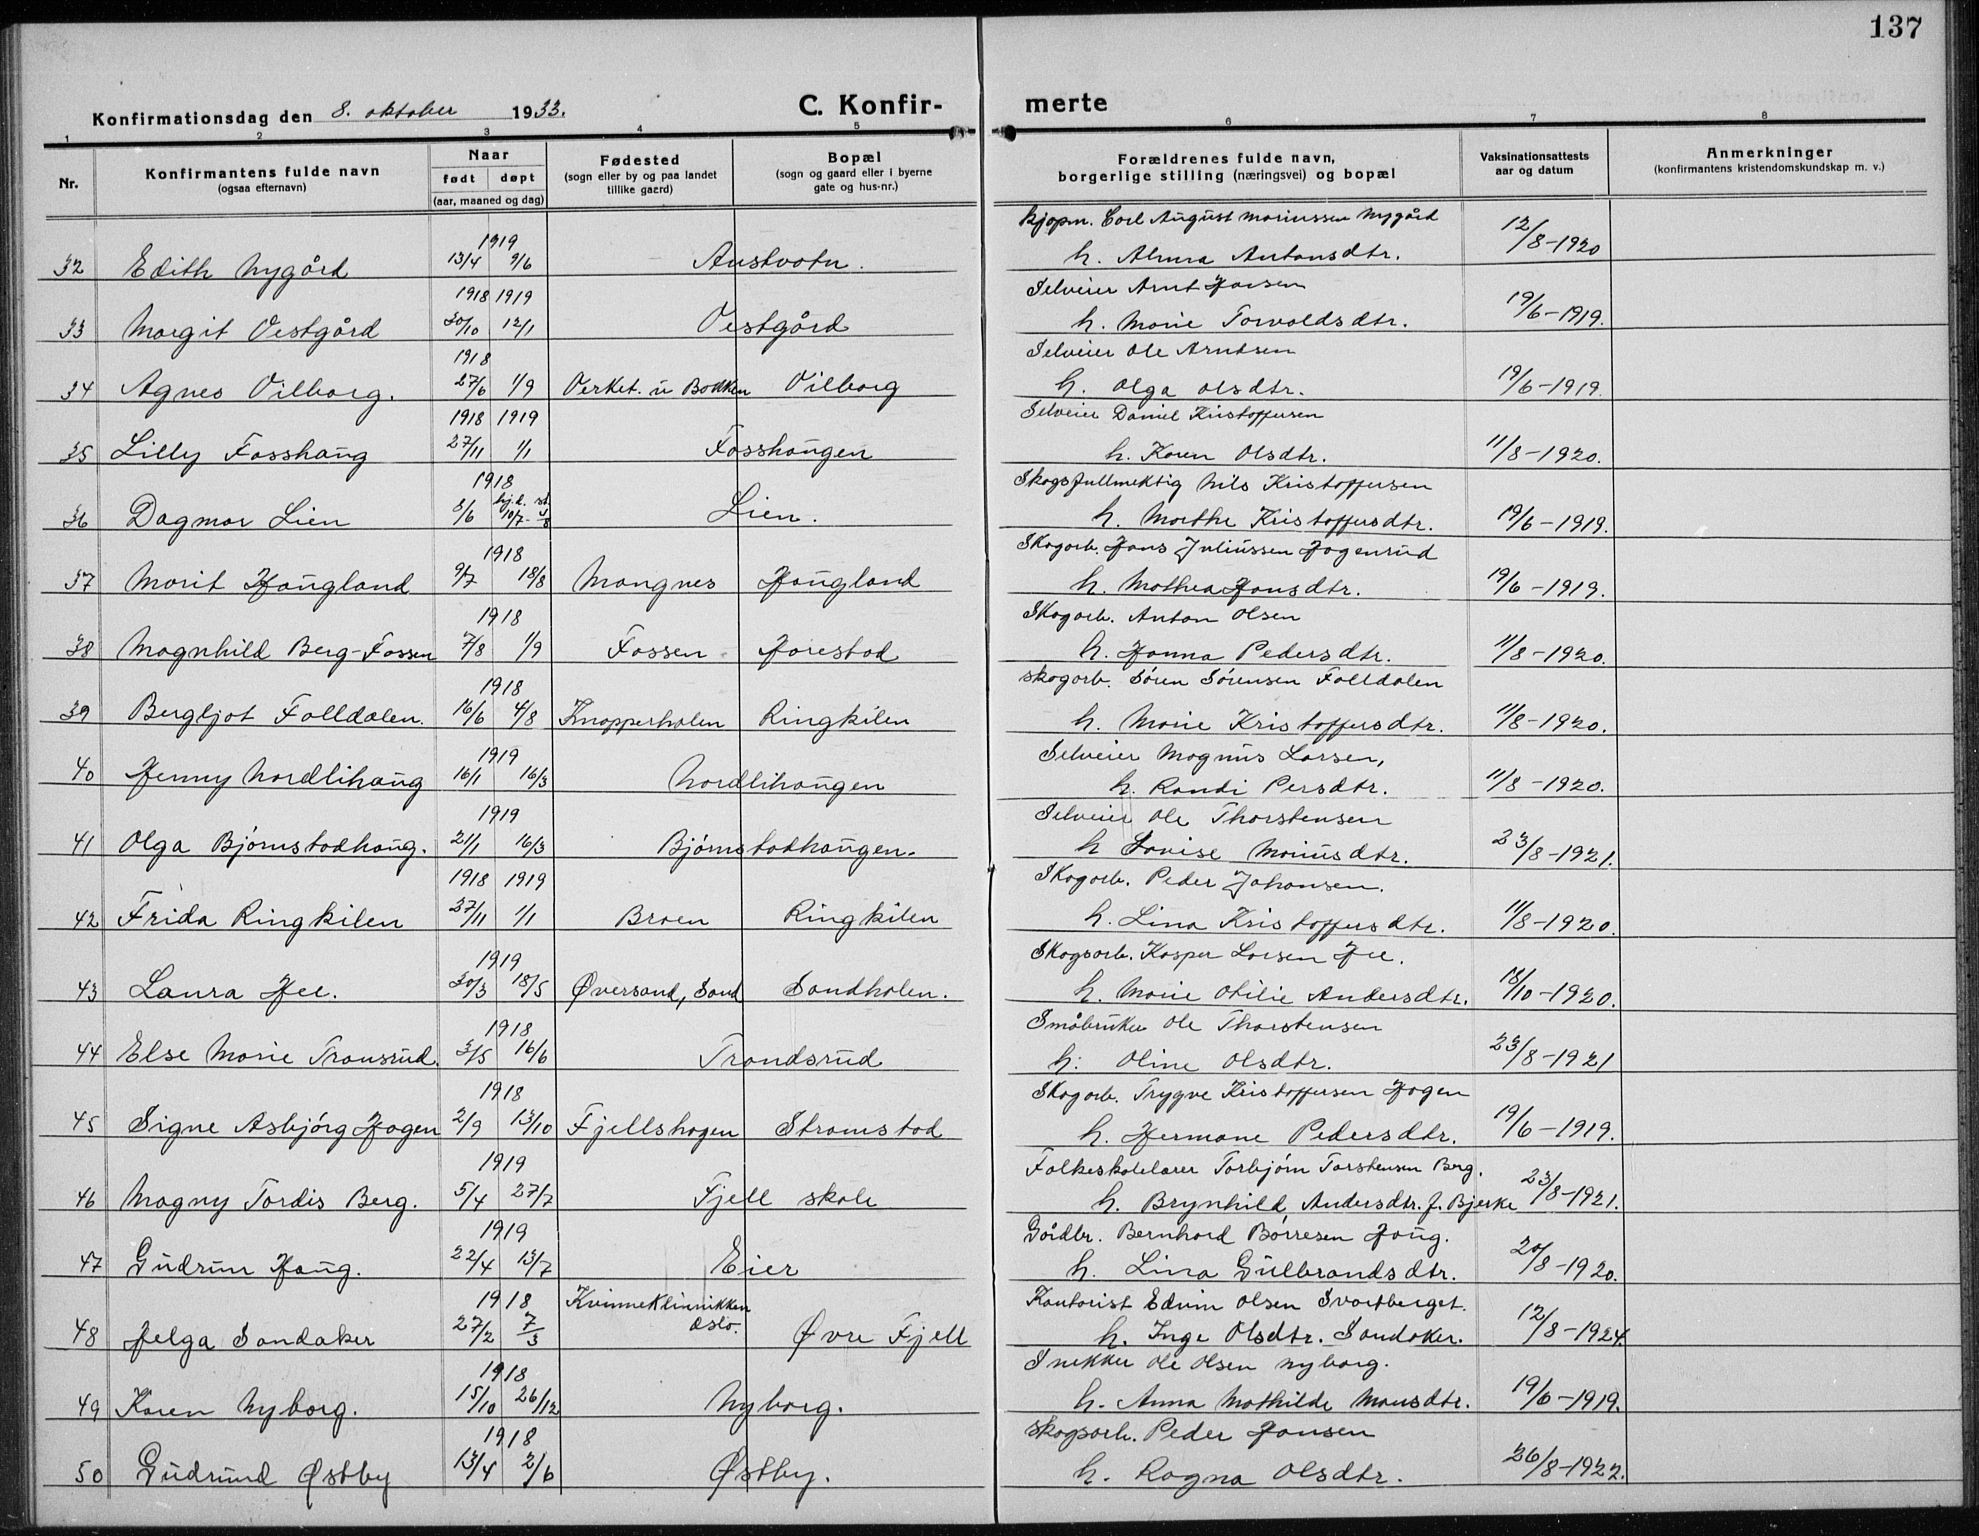 137
Konfirmationsdag den 8. oktober 1933. C. Konfir- merte
1 2 3 4 5 6 7 8
Nr. Konfirmantens fulde navn (ogsaa efternavn) Naar født døpt (aar, maaned og dag) Fødested (sogn eller by og paa landet tillike gaard) Bopæl (sogn og gaard eller i byerne gate og hus-nr.) Forældrenes fulde navn, borgerlige stilling (næringsvei) og bopæl Vaksinationsattests aar og datum Anmerkninger (konfirmantens kristendomskundskap m. v.)
1919 kjøpm. Carl August Mariussen Nygård
32 Edith Nygård 13/4 9/6 Austvatn. h. Alma Antonsdtr. 12/8-1920
1918 1919 Selveier Arnt Hansen
33 Margit Vestgård 30/10 12/1 Vestgård h. Marie Torvaldsdtr. 19/6-1919.
1918 Selveier Ole Arntsen
34 Agnes Vilborg. 27/6 1/9 Verket. u Bakken Vilborg h. Olga Olsdtr. 19/6-1919.
1918 1919 Selveier Daniel Kristoffersen
35 Lilly Fosshaug 27/11 1/1 Fosshaugen h. Karen Olsdtr. 11/8-1920.
1918 Skogsfullmektig Nils Kristoffersen
36 Dagmar Lien 8/6 hj.d. 10/7- Lien. h. Marthe Kristoffersdtr. 19/6-1919.
1918 Skogarb. Hans Juliussen Hagenrud
37 Marit Haugland 9/7 18/8 Mangnes Haugland h. Mathea Hansdtr. 19/6-1919.
1918 Skogarb. Anton Olsen
38 Magnhild Berg-Fossen 7/8 1/9 Fossen Harestad h. Hanna Pedersdtr. 11/8-1920.
1918 skogarb. Søren Sørensen Falldalen
39 Bergljot Falldalen. 16/6 4/8 Knapperholen Ringkilen h. Marie Kristoffersdtr. 11/8-1920.
1919 Selveier Magnus Larsen,
40 Henny Nordlihaug 16/1 16/3 Nordlihaugen h. Randi Persdtr. 11/8-1920.
1919 Selveier Ole Thorstensen
41 Olga Bjørnstadhaug. 21/1 16/3 Bjørnstadhaugen. h Lovise Mariusdtr. 23/8-1921.
1918 1919 Skogarb. Peder Johansen.
42 Frida Ringkilen 27/11 1/1 Braen Ringkilen h. Lina Kristoffersdtr. 11/8-1920.
1919 Skogsarb. Kasper Larsen Hee.
43 Laura Hee. 30/3 18/5 Øversand, Sand Sandholen. h. Marie Otilie Andersdtr. 18/10-1920.
1918 Småbruker Ole Thorstensen
44 Else Marie Transrud. 3/5 16/6 Trandsrud h. Oline Olsdtr. 23/8-1921
1918 Skogarb. Trygve Kristoffersen Hagen
45 Signe Asbjørg Hagen 2/9 13/10 Fjellshagen Stramstad h. Hermane Pedersdtr. 19/6-1919.
1919 Folkeskolelærer Torbjørn Torstensen Berg.
46 Magny Tordis Berg. 5/4 27/7 Fjell skole h. Brynhild Andersdtr. f. Bjerke 23/8-1921.
1919 Gårdbr. Bernhard Børresen Haug.
47 Gudrun Haug. 22/4 13/7 Eier h. Lina Gulbrandsdtr. 20/8-1920.
1918 Kvinneklinnikken Kontorist Edvin Olsen Svartberget.
48 Helga Sandaker 27/2 7/3 Oslo. Øvre Fjell h. Inga Olsdtr. Sandaker. 12/8-1924.
1918 Snekker Ole Olsen Nyborg.
49 Karen Nyborg. 15/10 26/12 Nyborg. h. Anna Mathilde Mansdtr. 19/6-1919.
1918 skogsarb. Peder Hansen
50 Gudrund Østby 13/4 2/6 Østby. h. Ragna Olsdtr. 26/8-1922.